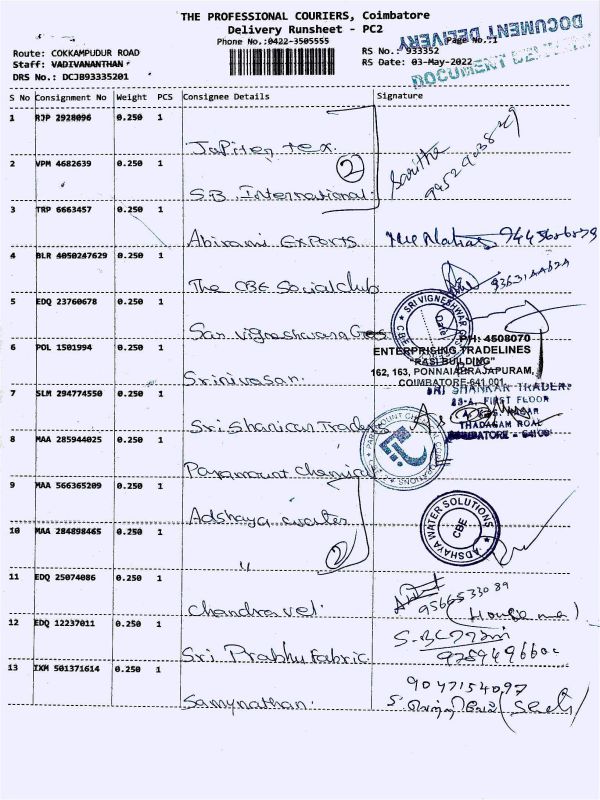 THE PROFESSIONAL COURIERS, Coimbatore
Delivery Runsheet - PC2
Phone No.:0422-3505555
Page No.:1
DOCUMENT DELIVERY
DOCUMENT DELIVERY
Route: COKKAMPUDUR ROAD
RS No.: 933352
Staff: VADIVANANTHAN
RS Date: 03-May-2022
DRS No.: DCJB93335201
S No Consignment No Weight PCS Consignee Details Signature
1 RJP 2928096 0.250 1
Jupiter tex.
2
Saritha
2 VPM 4682639 0.250 1
S.B. International.
3 TRP 6663457 0.250 1
Abirami Exports
4 BLR 4050247629 0.250 1
The CBE Social club
5 EDQ 23760678 0.250 1
SRI VIGNESHWAR
CBE
Date
6 POL 1501994 0.250 1
Srinivasan.
PH: 4508070
ENTERPRISING TRADELINES
"RASI BUILDING"
162, 163, PONNAIAHRAJAPURAM,
COIMBATORE-641 001
7 SLM 294774550 0.250 1
Sri Shankar Traders
SRI SHANKAR TRADERS
23-A, FIRST FLOOR
THADAGAM ROAD
COIMBATORE - 641001
8 MAA 285944025 0.250 1
Paramount Chemical
9 MAA 566365209 0.250 1
Adshaya water
ADSHAYA WATER SOLUTIONS
CBE
10 MAA 284898465 0.250 1
"
2
11 EDQ 25074086 0.250 1
Chandravel.
9566533089
12 EDQ 12237011 0.250 1
Sri Prabhu Fabric
13 IXM 501371614 0.250 1
Samynathan.
9047154097